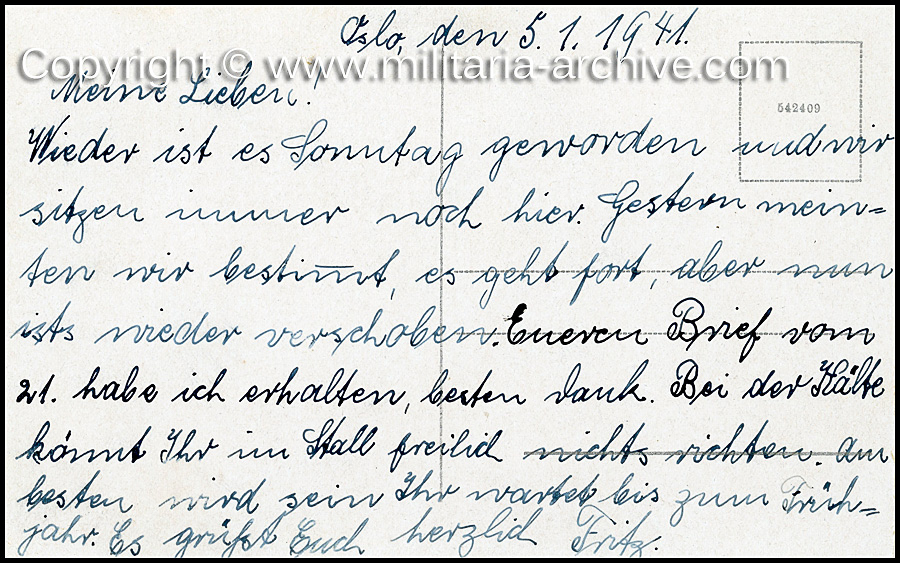 Oslo, den 5. 1. 1941.
Copyright © www.militaria-archive.com
Meine Lieben!
542409
Wieder ist es Sonntag geworden und wir
sitzen immer noch hier. Gestern mein=
ten wir bestimmt, es geht fort, aber nun
ists wieder verschoben. Eueren Brief vom
21. habe ich erhalten, besten Dank. Bei der Kälte
könnt Ihr im Stall freilich nichts richten. Am
besten wird sein Ihr wartet bis zum Früh=
jahr. Es grüßt Euch herzlich Fritz.